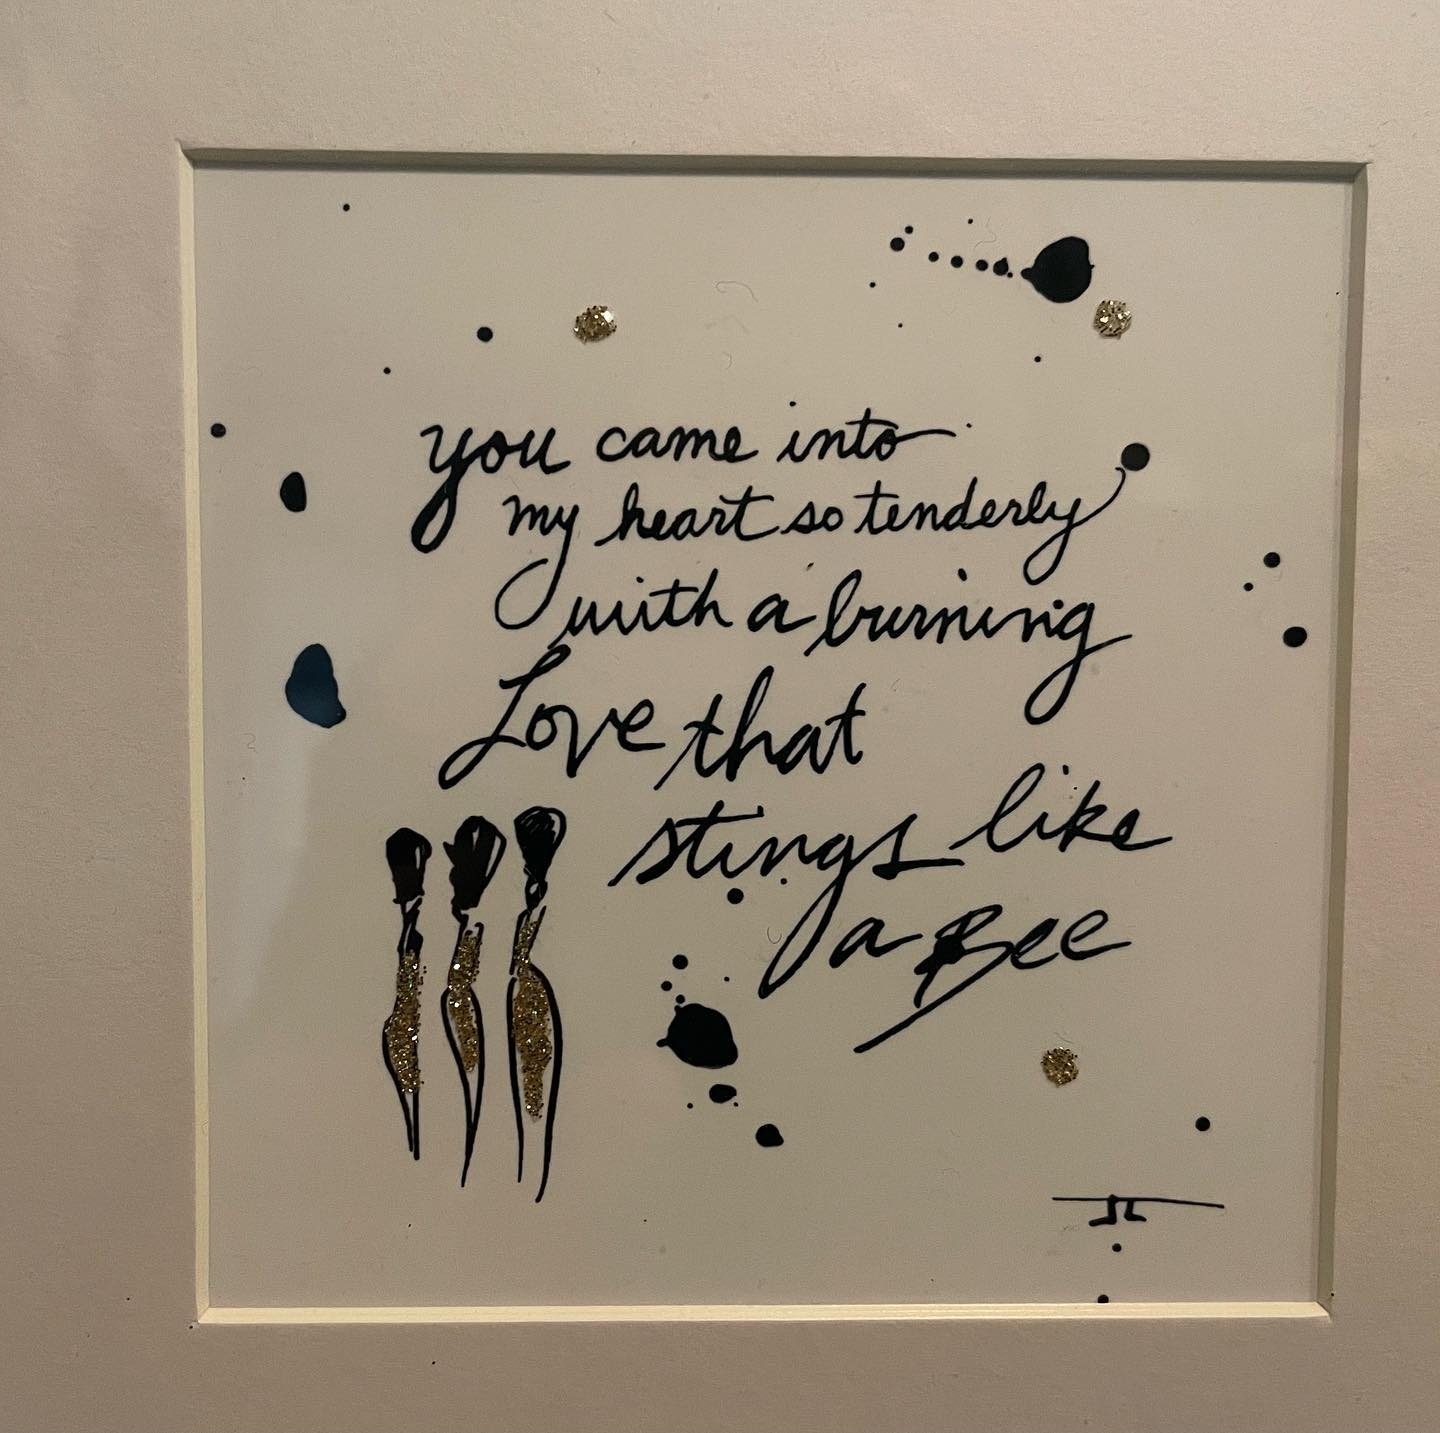 you came into
my heart so tenderly
with a burning
Love that
stings like
a Bee